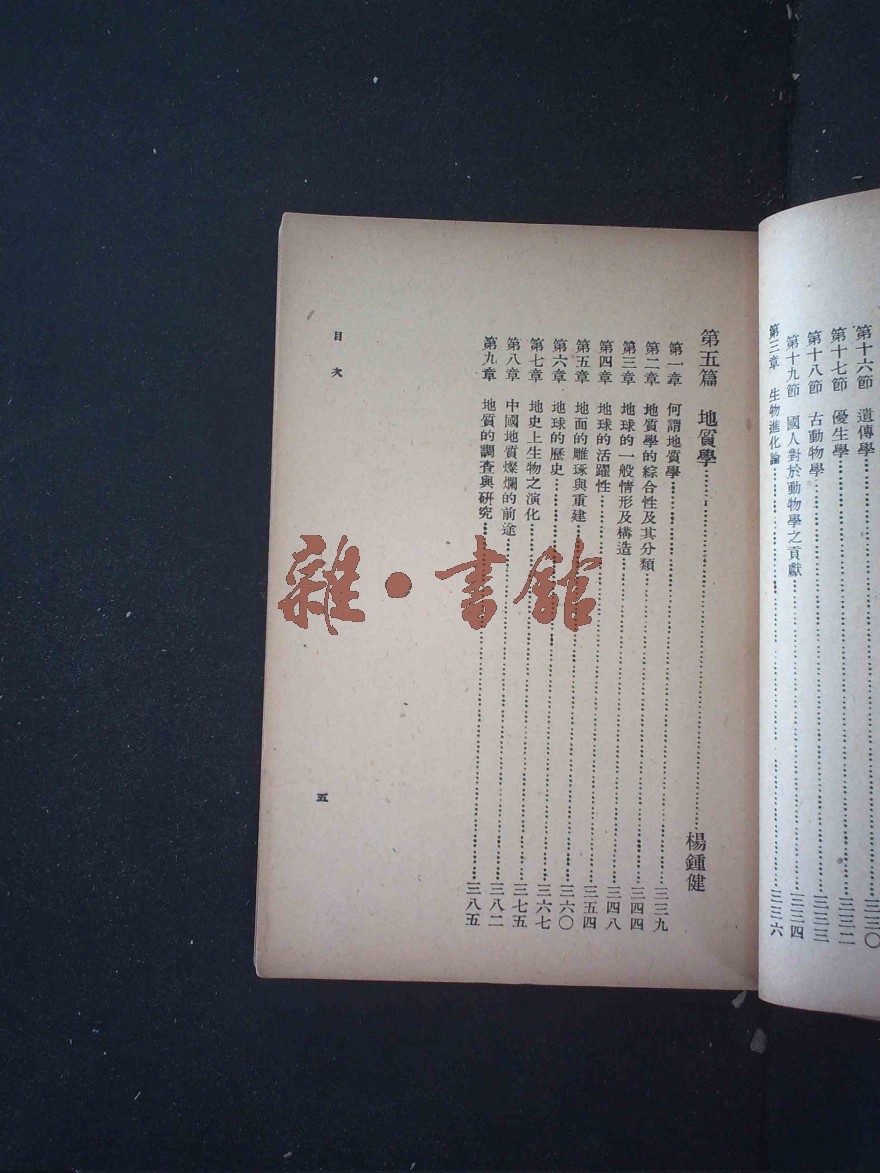 第十六節　遺傳學……三三〇
第十七節　優生學……三三二
第十八節　古動物學……三三三
第十九節　國人對於動物學之貢獻……三三四
第三章　生物進化論……三三六
第五篇　地質學……楊鍾健
第一章　何謂地質學……三三九
第二章　地質學的綜合性及其分類……三四四
第三章　地球的一般情形及構造……三四八
第四章　地球的活躍性……三五四
第五章　地面的雕琢與重建……三六〇
第六章　地球的歷史……三六七
第七章　地史上生物之演化……三七五
第八章　中國地質燦爛的前途……三八二
第九章　地質的調查與研究……三八五
目次
五
雜·書館